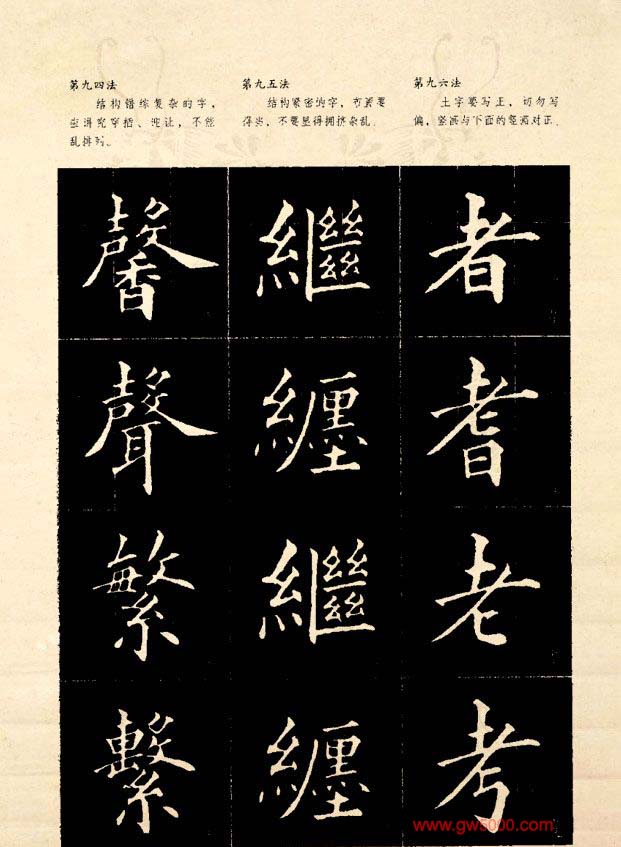 第九四法
结构错综复杂的字，
应讲究穿插、迎让，不能
乱排列。
第九五法
结构紧密的字，布置要
得当，不要显得拥挤杂乱。
第九六法
土字要写正，切勿写
偏，竖画与下面的竖画对正。
馨 繼 者
聲 纏 耆
繁 繼 老
繫 纏 考
www.gw5000.com